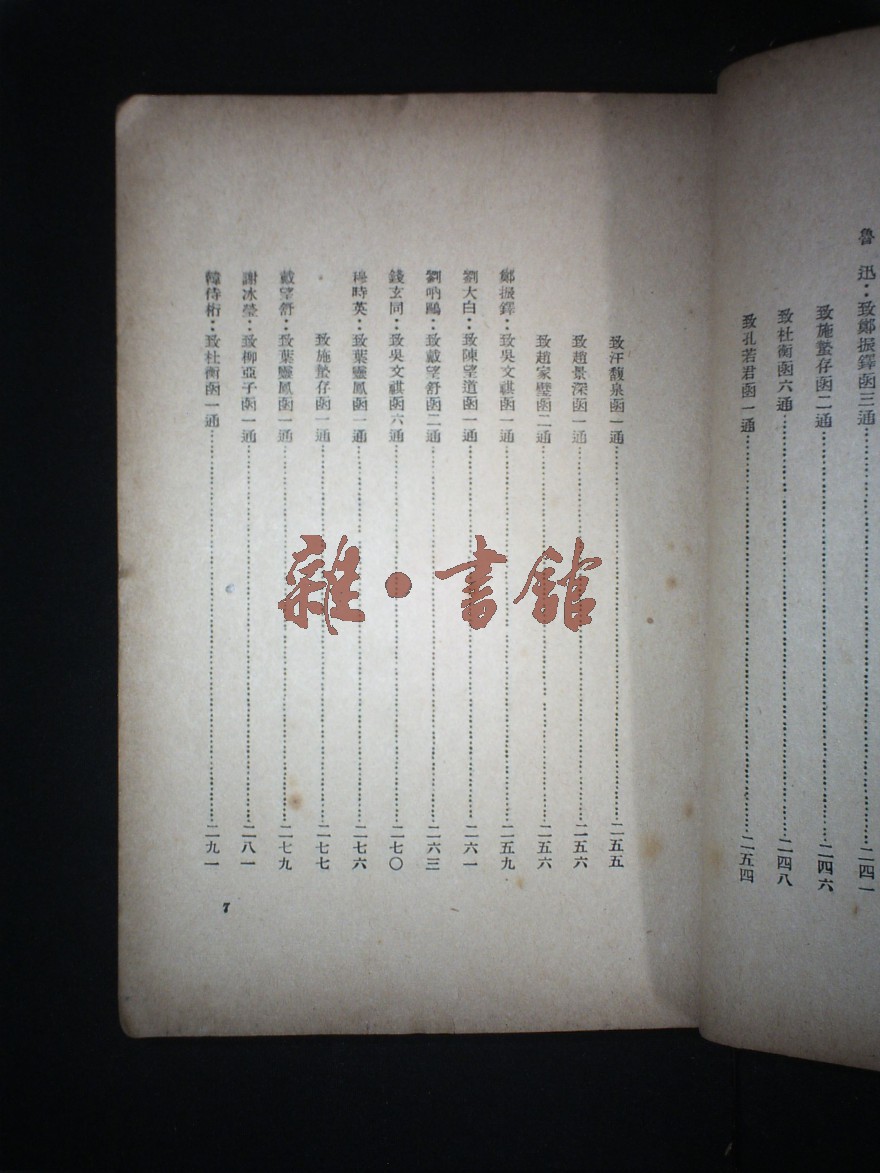 魯　迅：致鄭振鐸函三通……二四一
致施蟄存函二通……二四六
致杜衡函六通……二四八
致孔若君函一通……二五四
致汪馥泉函一通……二五五
致趙景深函一通……二五六
致趙家璧函二通……二五六
鄭振鐸：致吳文祺函一通……二五九
劉大白：致陳望道函一通……二六一
劉吶鷗：致戴望舒函二通……二六三
錢玄同：致吳文祺函六通……二七〇
穆時英：致葉靈鳳函一通……二七六
致施蟄存函一通……二七七
戴望舒：致葉靈鳳函一通……二七九
謝冰瑩：致柳亞子函一通……二八一
韓侍桁：致杜衡函一通……二九一
7
雜·書館